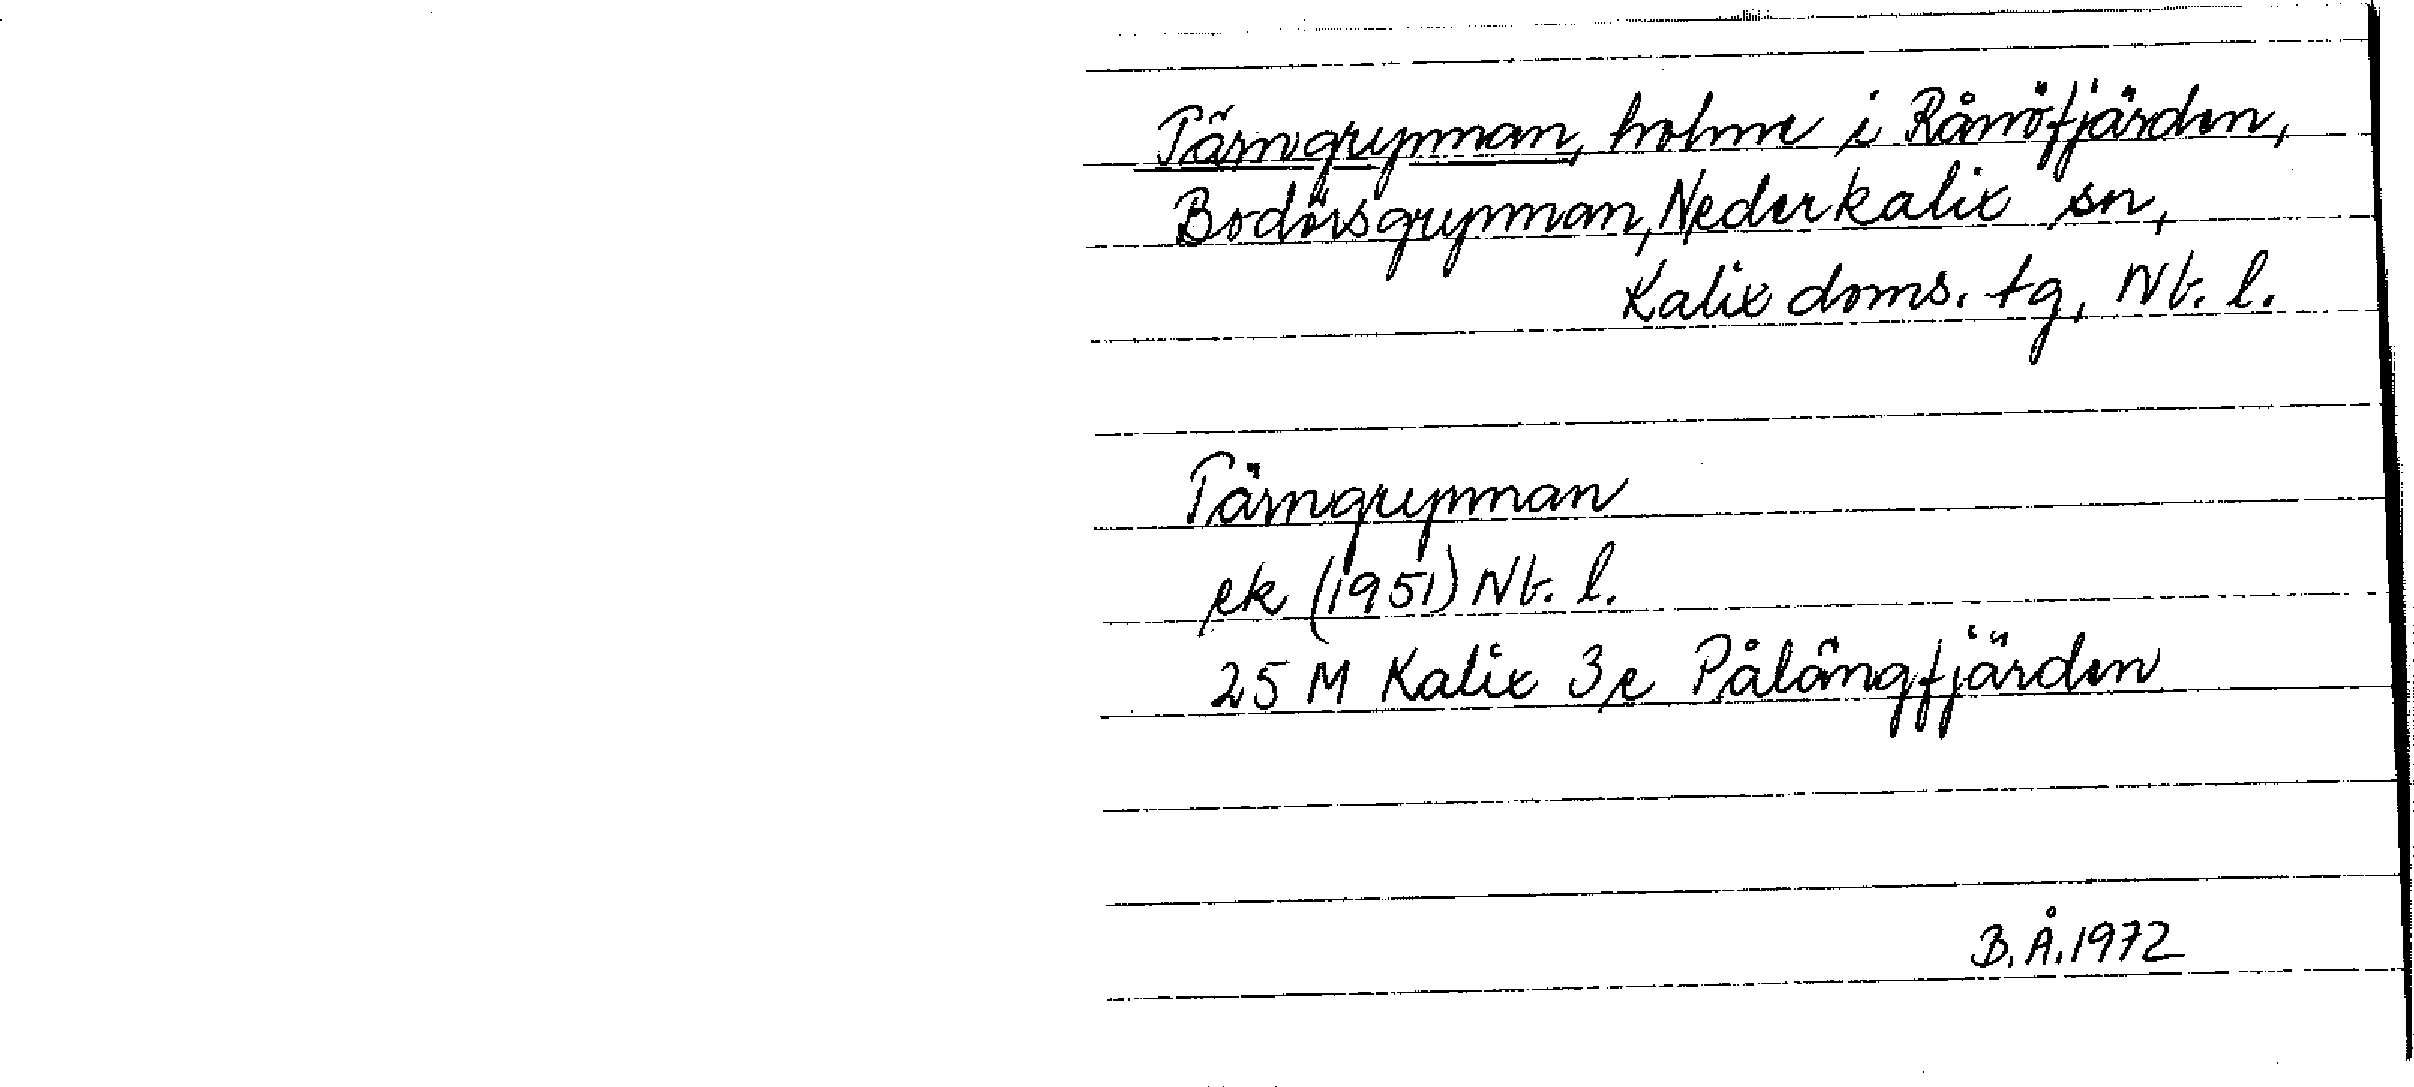 Tärngrynnan, holme i Rånöfjärden,
Bodörsgrynnan, Nederkalix sn,
Kalix doms. tg, Nb. l.
Tärngrynnan
ek (1951) Nb. l.
25 M Kalix 3e Pålängfjärden
B. Å. 1972